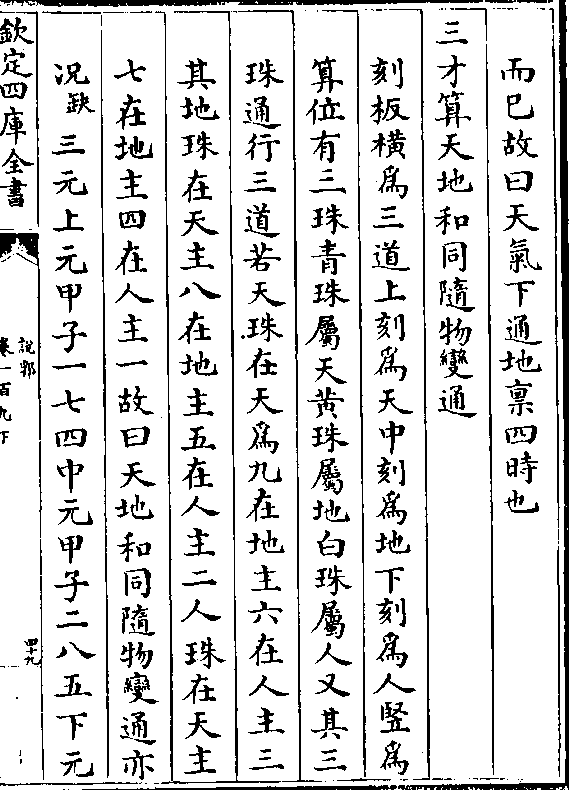 而已故曰天氣下通地稟四時也
三才算天地和同隨物變通
刻板橫為三道上刻為天中刻為地下刻為人豎為
算位有三珠青珠屬天黃珠屬地白珠屬人又其三
珠通行三道若天珠在天為九在地主六在人主三
其地珠在天主八在地主五在人主二人珠在天主
七在地主四在人主一故曰天地和同隨物變通亦
況缺三元上元甲子一七四中元甲子二八五下元
欽定四庫全書
說郛
卷一百九下
四十九